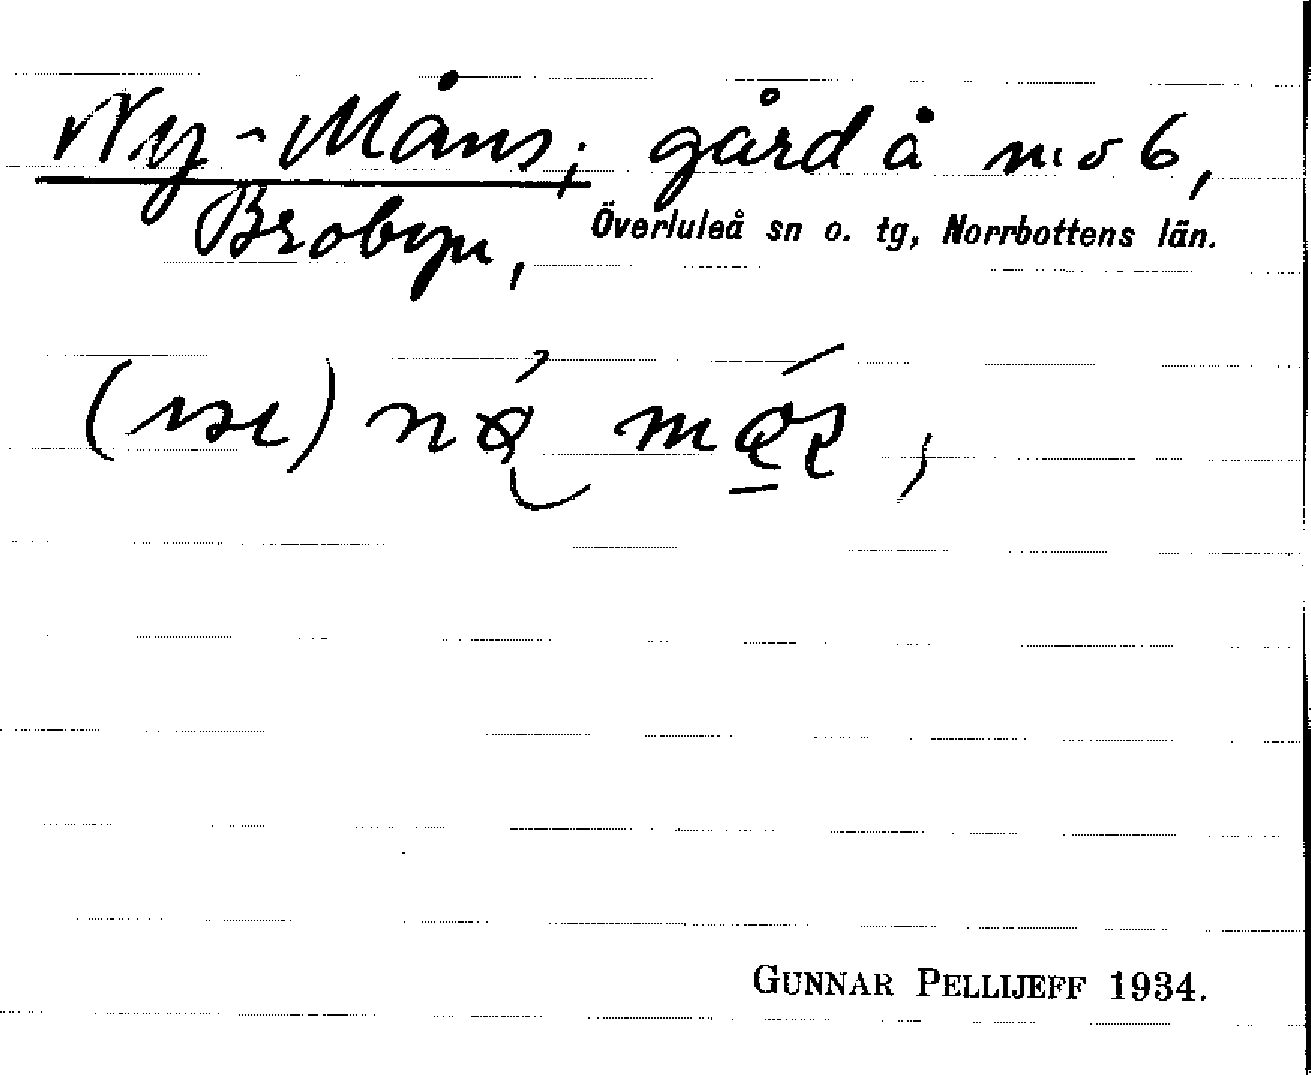 Ny-Måns, gård å nr 6,
Brobyn, Överluleå sn o. tg, Norrbottens län.
GUNNAR PELLIJEFF 1934.